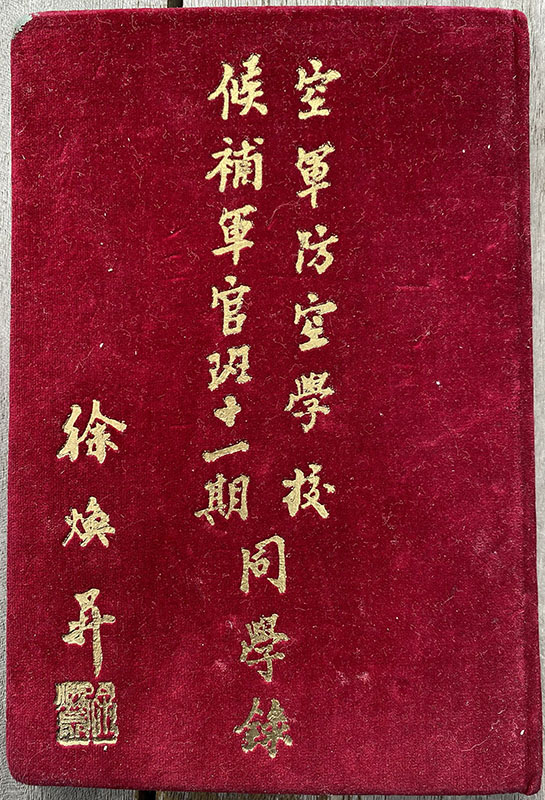 空軍防空學校
候補軍官班十一期
同學錄
徐煥昇